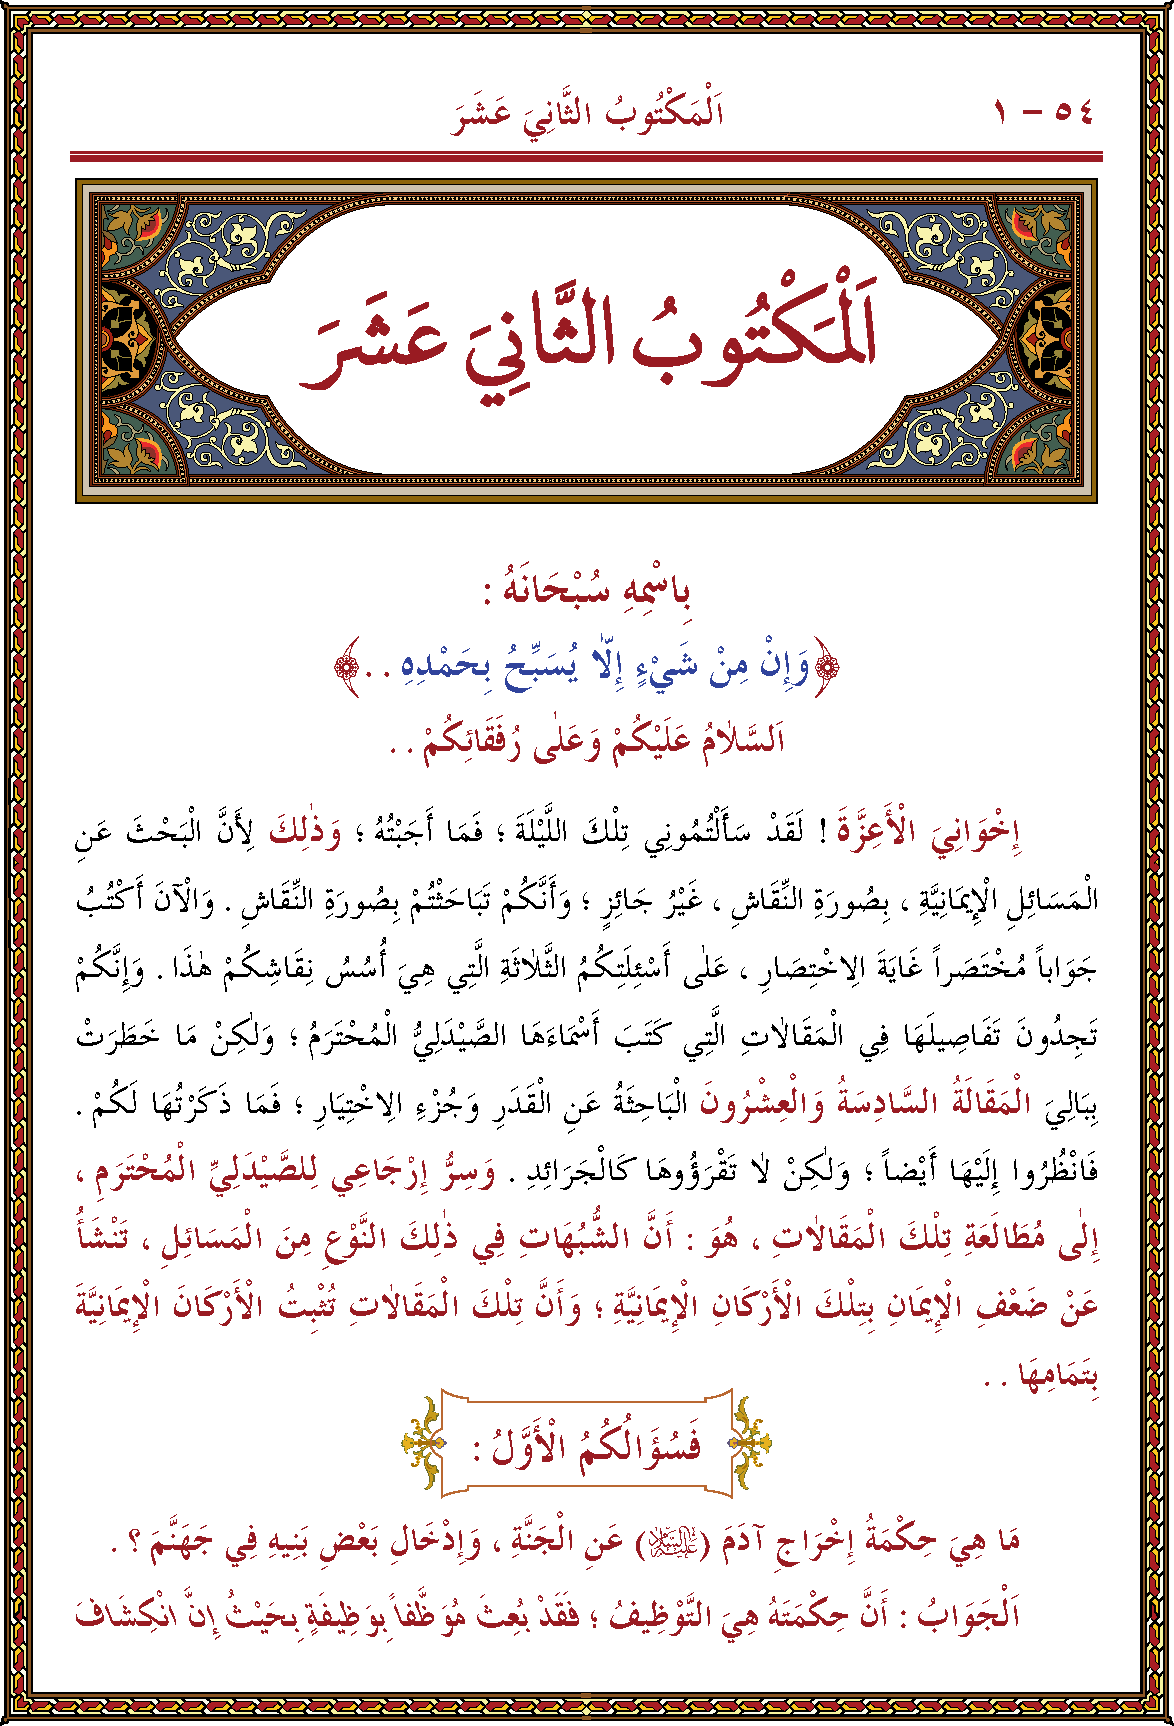 ٥٤ - ١
اَلْمَكْتُوبُ الثَّانِيَ عَشَرَ
اَلْمَكْتُوبُ الثَّانِيَ عَشَرَ
بِاسْمِهِ سُبْحَانَهُ :
﴿وَإِنْ مِنْ شَيْءٍ إِلَّا يُسَبِّحُ بِحَمْدِهِ . .﴾
اَلسَّلاٰمُ عَلَيْكُمْ وَعَلٰى رُفَقَائِكُمْ . .
إِخْوَانِيَ الْأَعِزَّةَ ! لَقَدْ سَأَلْتُمُونِي تِلْكَ اللَّيْلَةَ ؛ فَمَا أَجَبْتُهُ ؛ وَذٰلِكَ لِأَنَّ الْبَحْثَ عَنِ
الْمَسَائِلِ الْإِيمَانِيَّةِ ، بِصُورَةِ النِّقَاشِ ، غَيْرُ جَائِزٍ ؛ وَأَنَّكُمْ تَبَاحَثْتُمْ بِصُورَةِ النِّقَاشِ . وَالْآنَ أَكْتُبُ
جَوَاباً مُخْتَصَراً غَايَةَ الِاخْتِصَارِ ، عَلٰى أَسْئِلَتِكُمُ الثَّلاٰثَةِ الَّتِي هِيَ أُسُسُ نِقَاشِكُمْ هٰذَا . وَإِنَّكُمْ
تَجِدُونَ تَفَاصِيلَهَا فِي الْمَقَالاٰتِ الَّتِي كَتَبَ أَسْمَاءَهَا الصَّيْدَلِيُّ الْمُحْتَرَمُ ؛ وَلٰكِنْ مَا خَطَرَتْ
بِبَالِيَ الْمَقَالَةُ السَّادِسَةُ وَالْعِشْرُونَ الْبَاحِثَةُ عَنِ الْقَدَرِ وَجُزْءِ الِاخْتِيَارِ ؛ فَمَا ذَكَرْتُهَا لَكُمْ .
فَانْظُرُوا إِلَيْهَا أَيْضاً ؛ وَلٰكِنْ لاٰ تَقْرَؤُوهَا كَالْجَرَائِدِ . وَسِرُّ إِرْجَاعِي لِلصَّيْدَلِيِّ الْمُحْتَرَمِ ،
إِلٰى مُطَالَعَةِ تِلْكَ الْمَقَالاٰتِ ، هُوَ : أَنَّ الشُّبُهَاتِ فِي ذٰلِكَ النَّوْعِ مِنَ الْمَسَائِلِ ، تَنْشَأُ
عَنْ ضَعْفِ الْإِيمَانِ بِتِلْكَ الْأَرْكَانِ الْإِيمَانِيَّةِ ؛ وَأَنَّ تِلْكَ الْمَقَالاٰتِ تُثْبِتُ الْأَرْكَانَ الْإِيمَانِيَّةَ
بِتَمَامِهَا . .
فَسُؤَالُكُمُ الْأَوَّلُ :
مَا هِيَ حِكْمَةُ إِخْرَاجِ آدَمَ (عَلَيْهِ السَّلَامُ) عَنِ الْجَنَّةِ ، وَإِدْخَالِ بَعْضِ بَنِيهِ فِي جَهَنَّمَ ؟ .
اَلْجَوَابُ : أَنَّ حِكْمَتَهُ هِيَ التَّوْظِيفُ ؛ فَقَدْ بُعِثَ هُوَ مُوَظَّفاً بِوَظِيفَةٍ بِحَيْثُ إِنَّ انْكِشَافَ